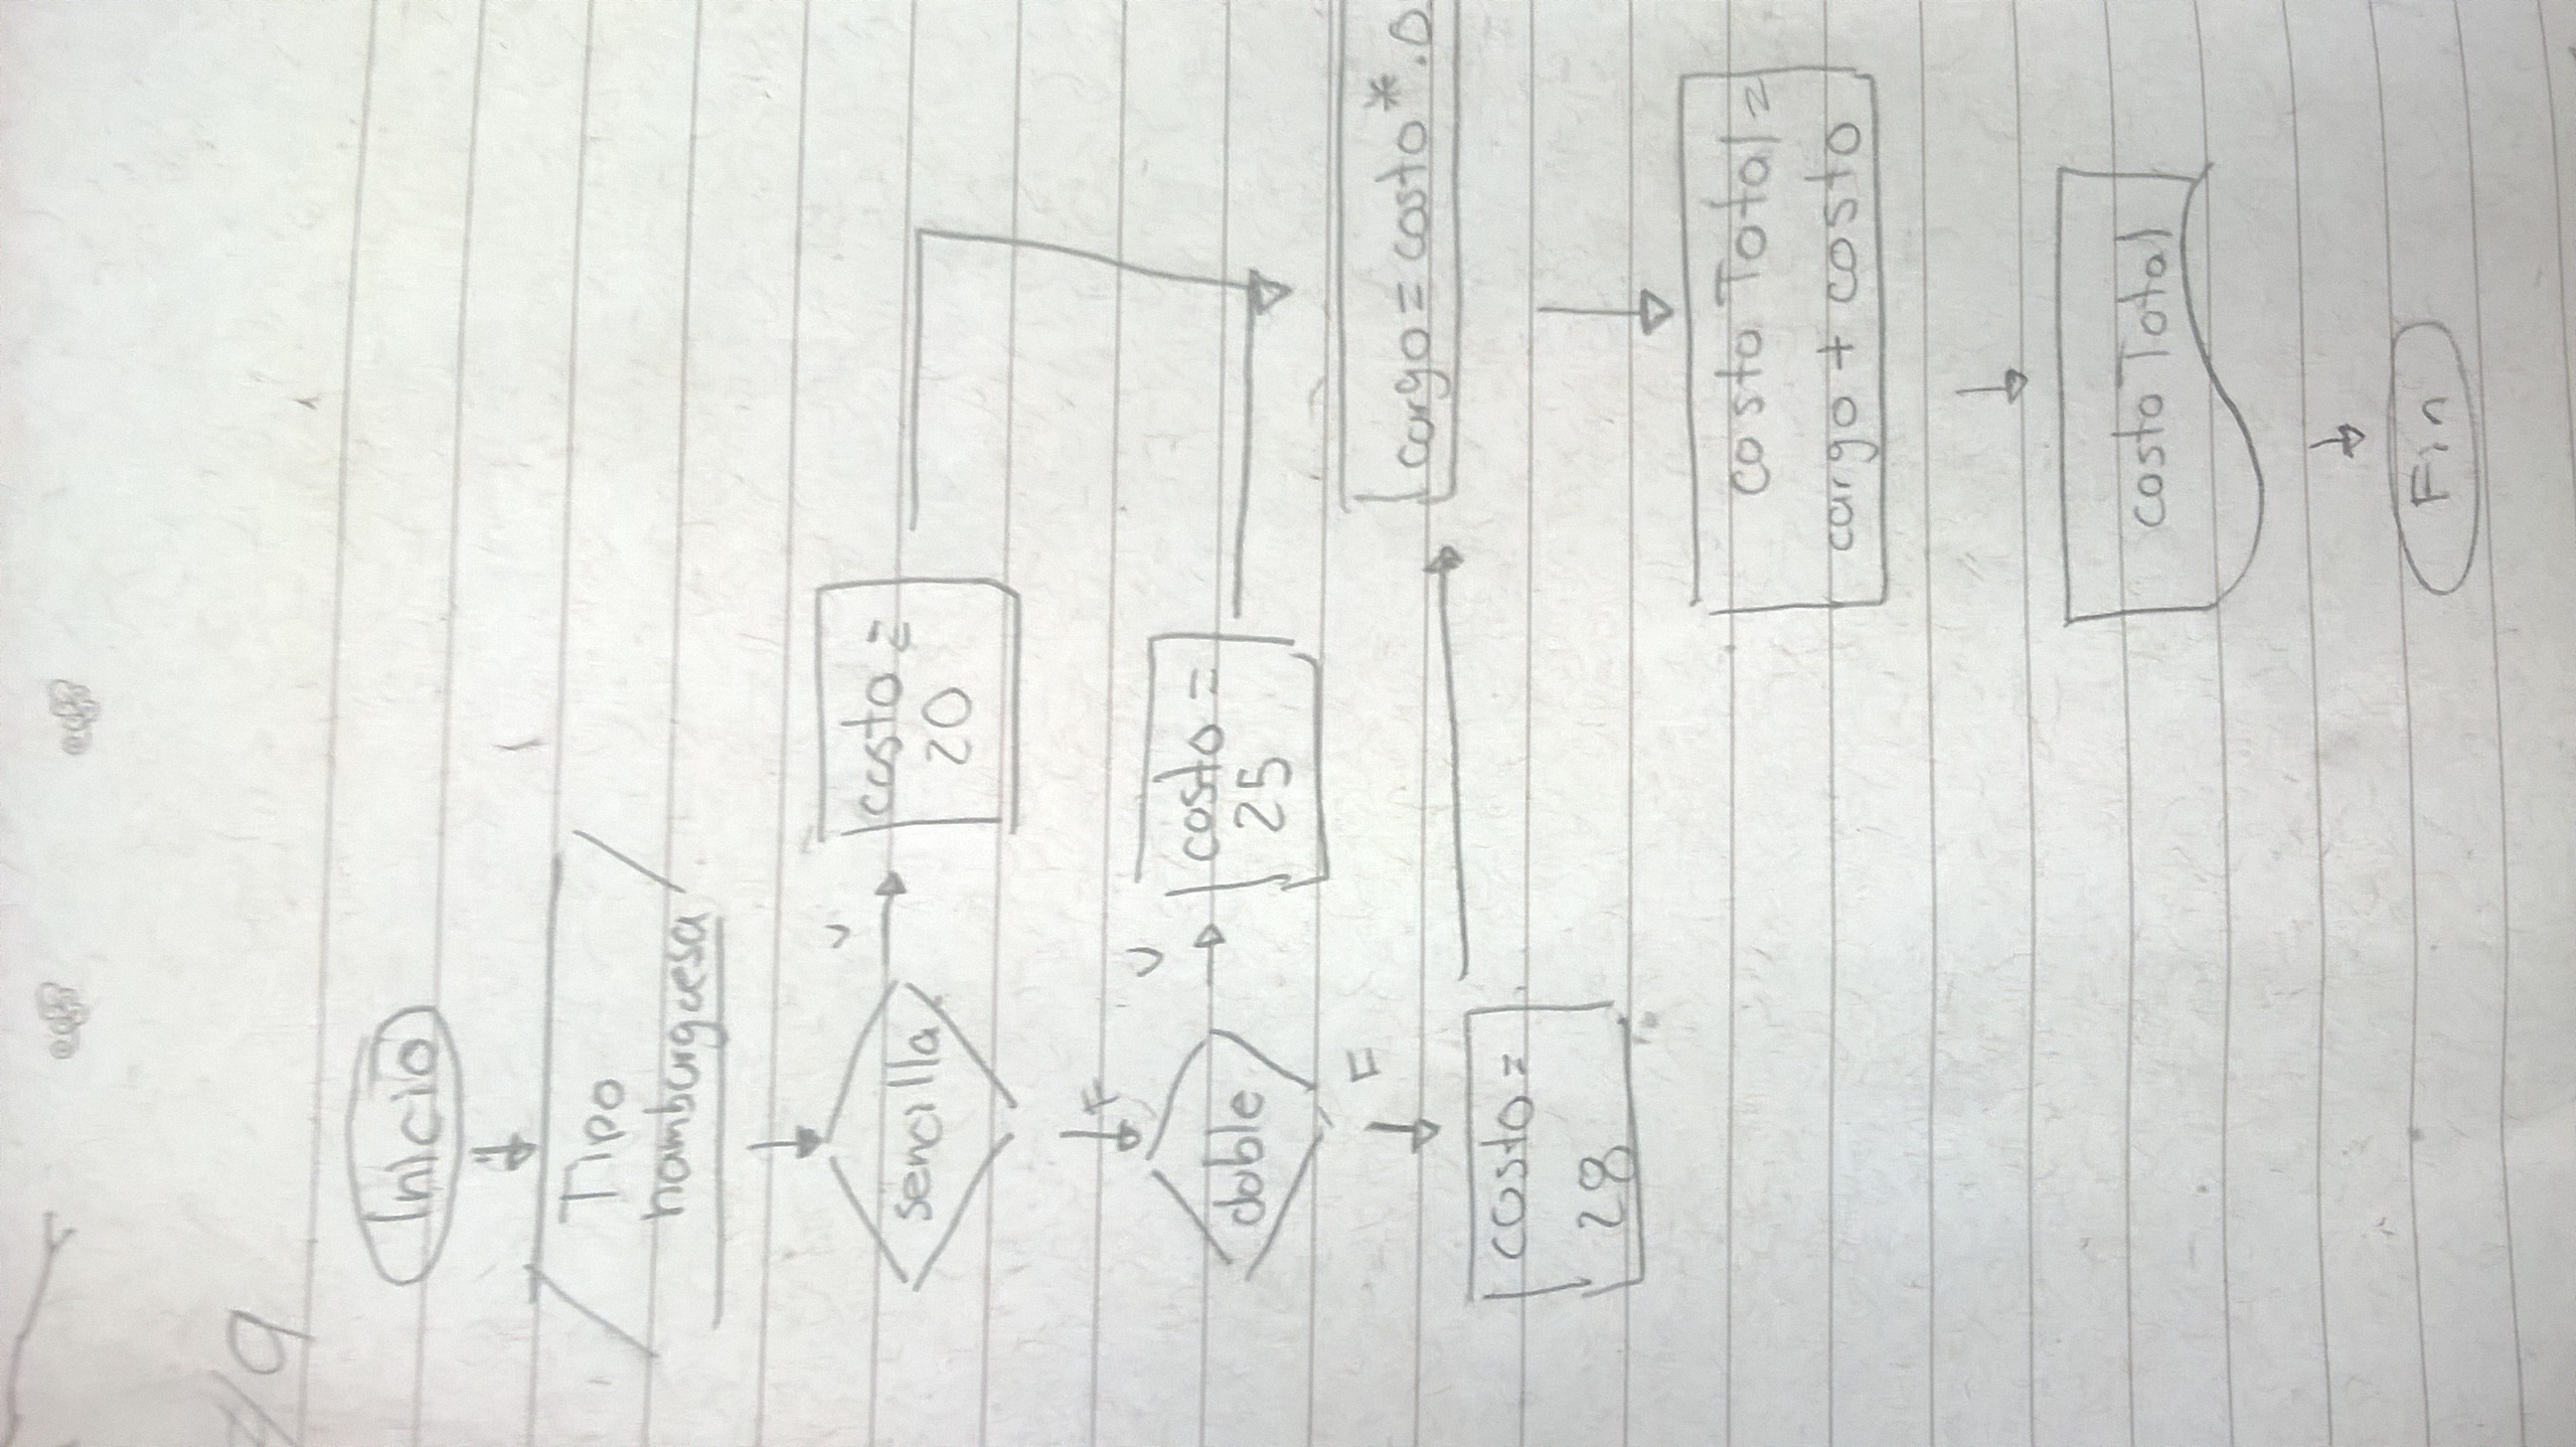 9
Inicio
Tipo
hamburguesa
V
sencilla
costo =
20
F
V
doble
costo =
25
F
costo =
28
cargo = costo * .0
costo Total =
cargo + costo
costo Total
Fin